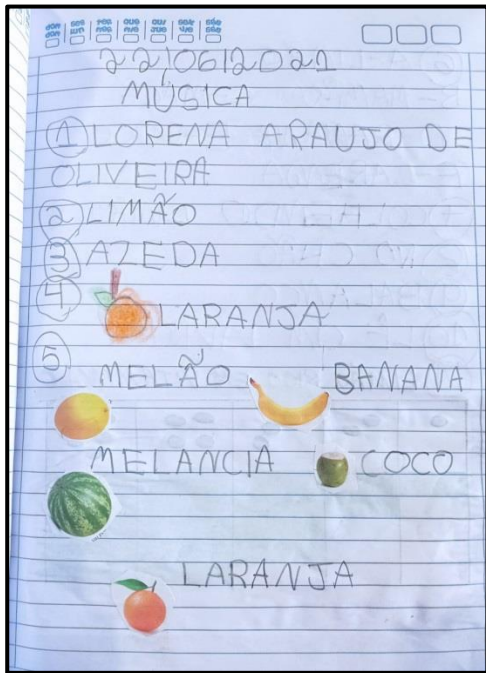 dom seg ter qua qui sex sáb
22/06/2021
MÚSICA
1 LORENA ARAUJO DE
OLIVEIRA
2 LIMÃO
3 AZEDA
4 LARANJA
5 MELÃO BANANA
MELANCIA COCO
LARANJA